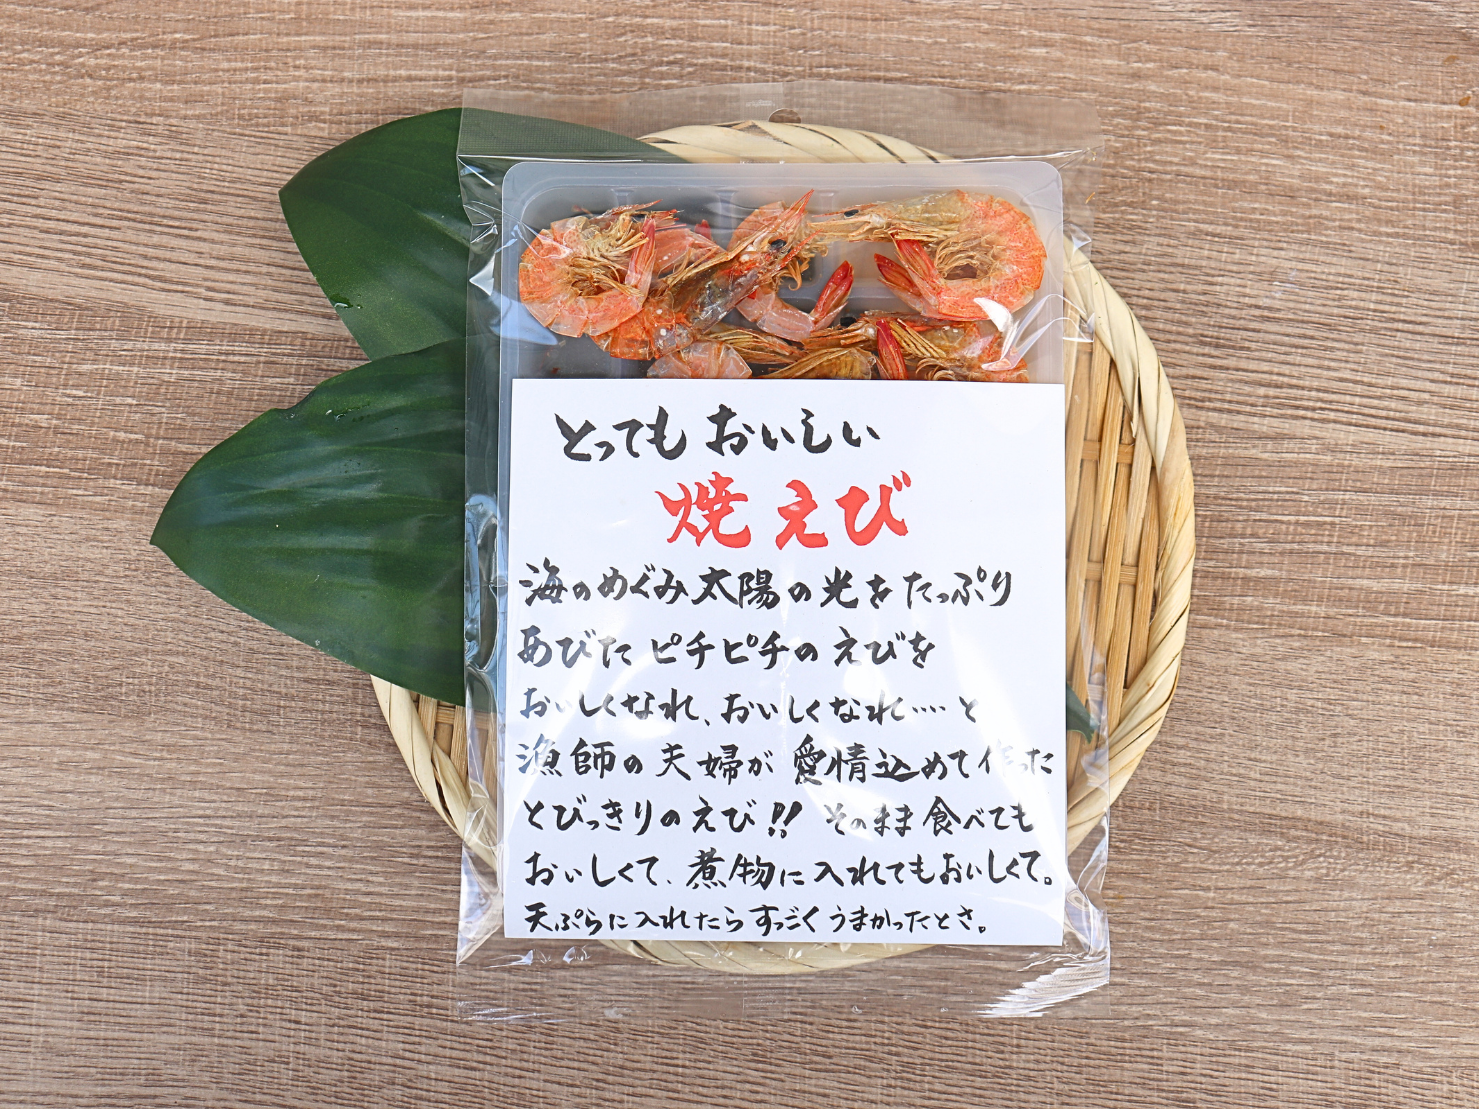 とってもおいしい
焼えび
海のめぐみ太陽の光をたっぷり
あびたピチピチのえびを
おいしくなれ、おいしくなれ‥‥と
漁師の夫婦が愛情込めて作った
とびっきりのえび!!そのまま食べても
おいしくて、煮物に入れてもおいしくて。
天ぷらに入れたらすっごくうまかったとさ。